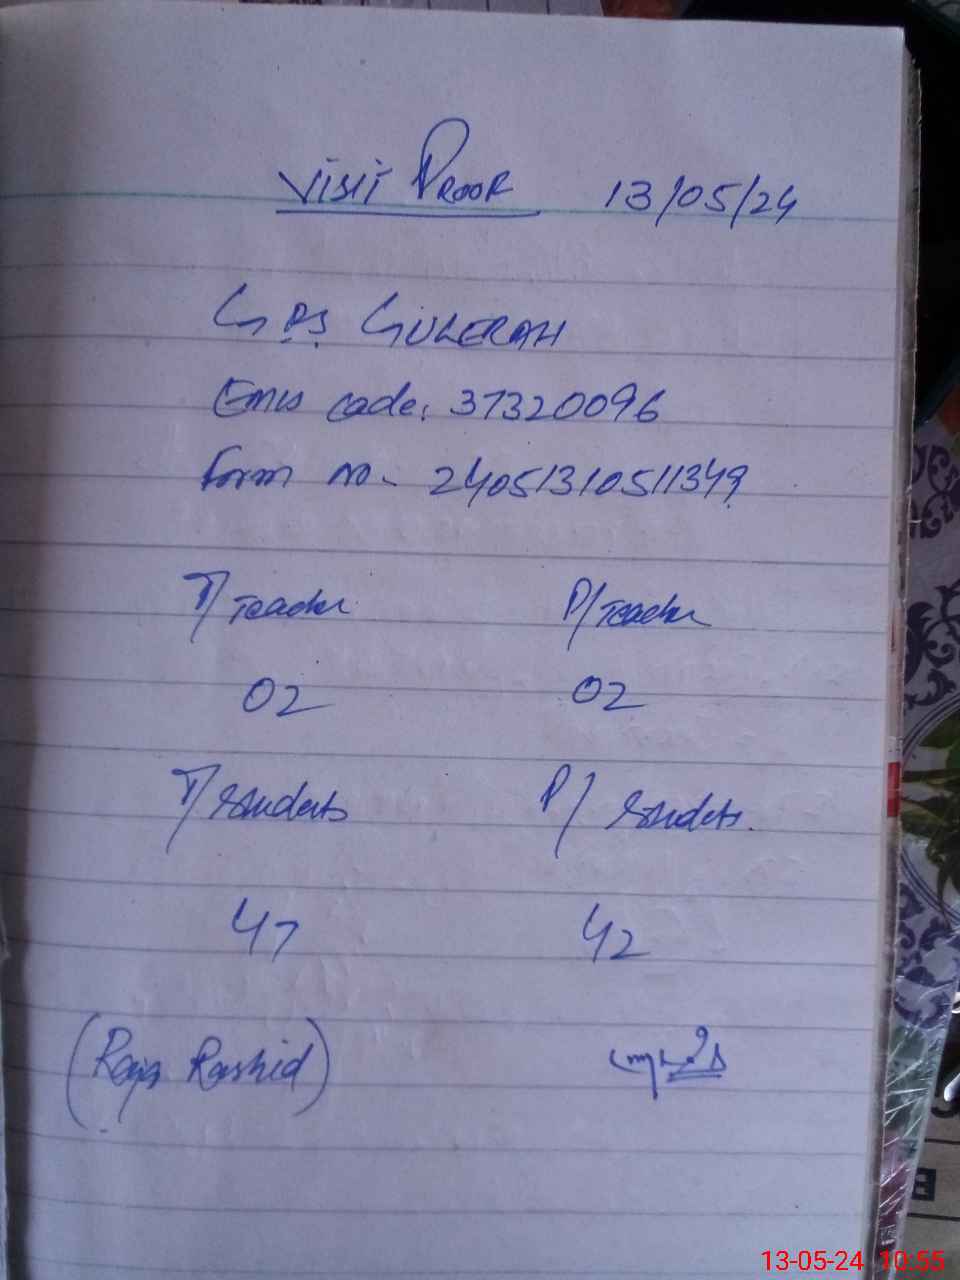 Visit Proof 13/05/24
G.P.S GULERAH
Emis code: 37320096
Form no- 24051310511349
T/ Teacher P/ Teacher
02 02
T/ Students P/ Students.
47 42
(Raja Rashid)
13-05-24 10:55